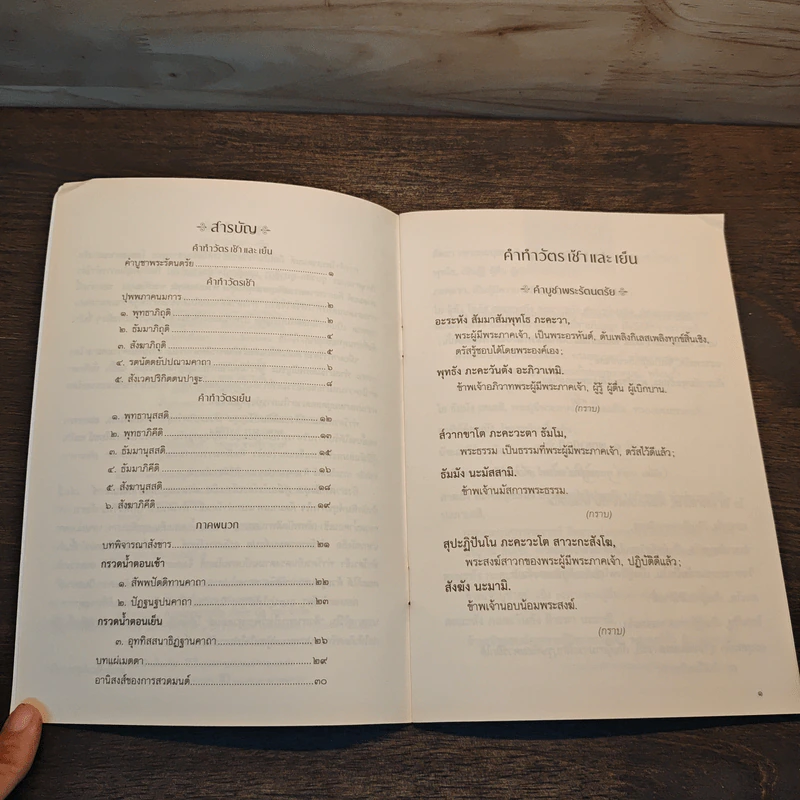 สารบัญ
คำทำวัตร เช้า และ เย็น
คำบูชาพระรัตนตรัย ๑
คำทำวัตรเช้า
ปุพพภาคนมการ ๒
๑. พุทธาภิถุติ ๒
๒. ธัมมาภิถุติ ๔
๓. สังฆาภิถุติ ๕
๔. รตนัตตยัปปณามคาถา ๖
๕. สังเวคปริกิตตนปาฐะ ๘
คำทำวัตรเย็น
๑. พุทธานุสสติ ๑๒
๒. พุทธาภิคีติ ๑๓
๓. ธัมมานุสสติ ๑๕
๔. ธัมมาภิคีติ ๑๖
๕. สังฆานุสสติ ๑๘
๖. สังฆาภิคีติ ๑๙
ภาคผนวก
บทพิจารณาสังขาร ๒๑
กรวดน้ำตอนเช้า
๑. สัพพปัตติทานคาถา ๒๒
๒. ปัฏฐนฐปนคาถา ๒๓
กรวดน้ำตอนเย็น
๓. อุททิสสนาธิฏฐานคาถา ๒๖
บทแผ่เมตตา ๒๙
อานิสงส์ของการสวดมนต์ ๓๐
คำทำวัตร เช้า และ เย็น
คำบูชาพระรัตนตรัย
อะระหัง สัมมาสัมพุทโธ ภะคะวา,
พระผู้มีพระภาคเจ้า, เป็นพระอรหันต์, ดับเพลิงกิเลสเพลิงทุกข์สิ้นเชิง,
ตรัสรู้ชอบได้โดยพระองค์เอง;
พุทธัง ภะคะวันตัง อะภิวาเทมิ.
ข้าพเจ้าอภิวาทพระผู้มีพระภาคเจ้า, ผู้รู้ ผู้ตื่น ผู้เบิกบาน.
(กราบ)
ส๎วากขาโต ภะคะวะตา ธัมโม,
พระธรรม เป็นธรรมที่พระผู้มีพระภาคเจ้า, ตรัสไว้ดีแล้ว;
ธัมมัง นะมัสสามิ.
ข้าพเจ้านมัสการพระธรรม.
(กราบ)
สุปะฏิปันโน ภะคะวะโต สาวะกะสังโฆ,
พระสงฆ์สาวกของพระผู้มีพระภาคเจ้า, ปฏิบัติดีแล้ว;
สังฆัง นะมามิ.
ข้าพเจ้านอบน้อมพระสงฆ์.
(กราบ)
๑